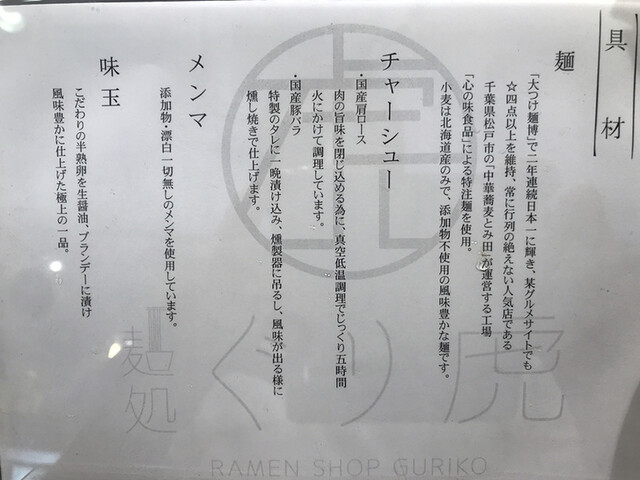 具材
麺
「大つけ麺博」で二年連続日本一に輝き、某グルメサイトでも
☆四点以上を維持、常に行列の絶えない人気店である
千葉県松戸市の「中華蕎麦とみ田」が運営する工場
「心の味食品」による特注麺を使用。
小麦は北海道産のみで、添加物不使用の風味豊かな麺です。
チャーシュー
・国産肩ロース
肉の旨味を閉じ込める為に、真空低温調理でじっくり五時間
火にかけて調理しています。
・国産豚バラ
特製のタレに一晩漬け込み、燻製器に吊るし、風味が出る様に
燻し焼きで仕上げます。
メンマ
添加物・漂白一切無しのメンマを使用しています。
味玉
こだわりの半熟卵を生醤油、ブランデーに漬け
風味豊かに仕上げた極上の一品。
虎
麺処
ぐり虎
RAMEN SHOP GURIKO